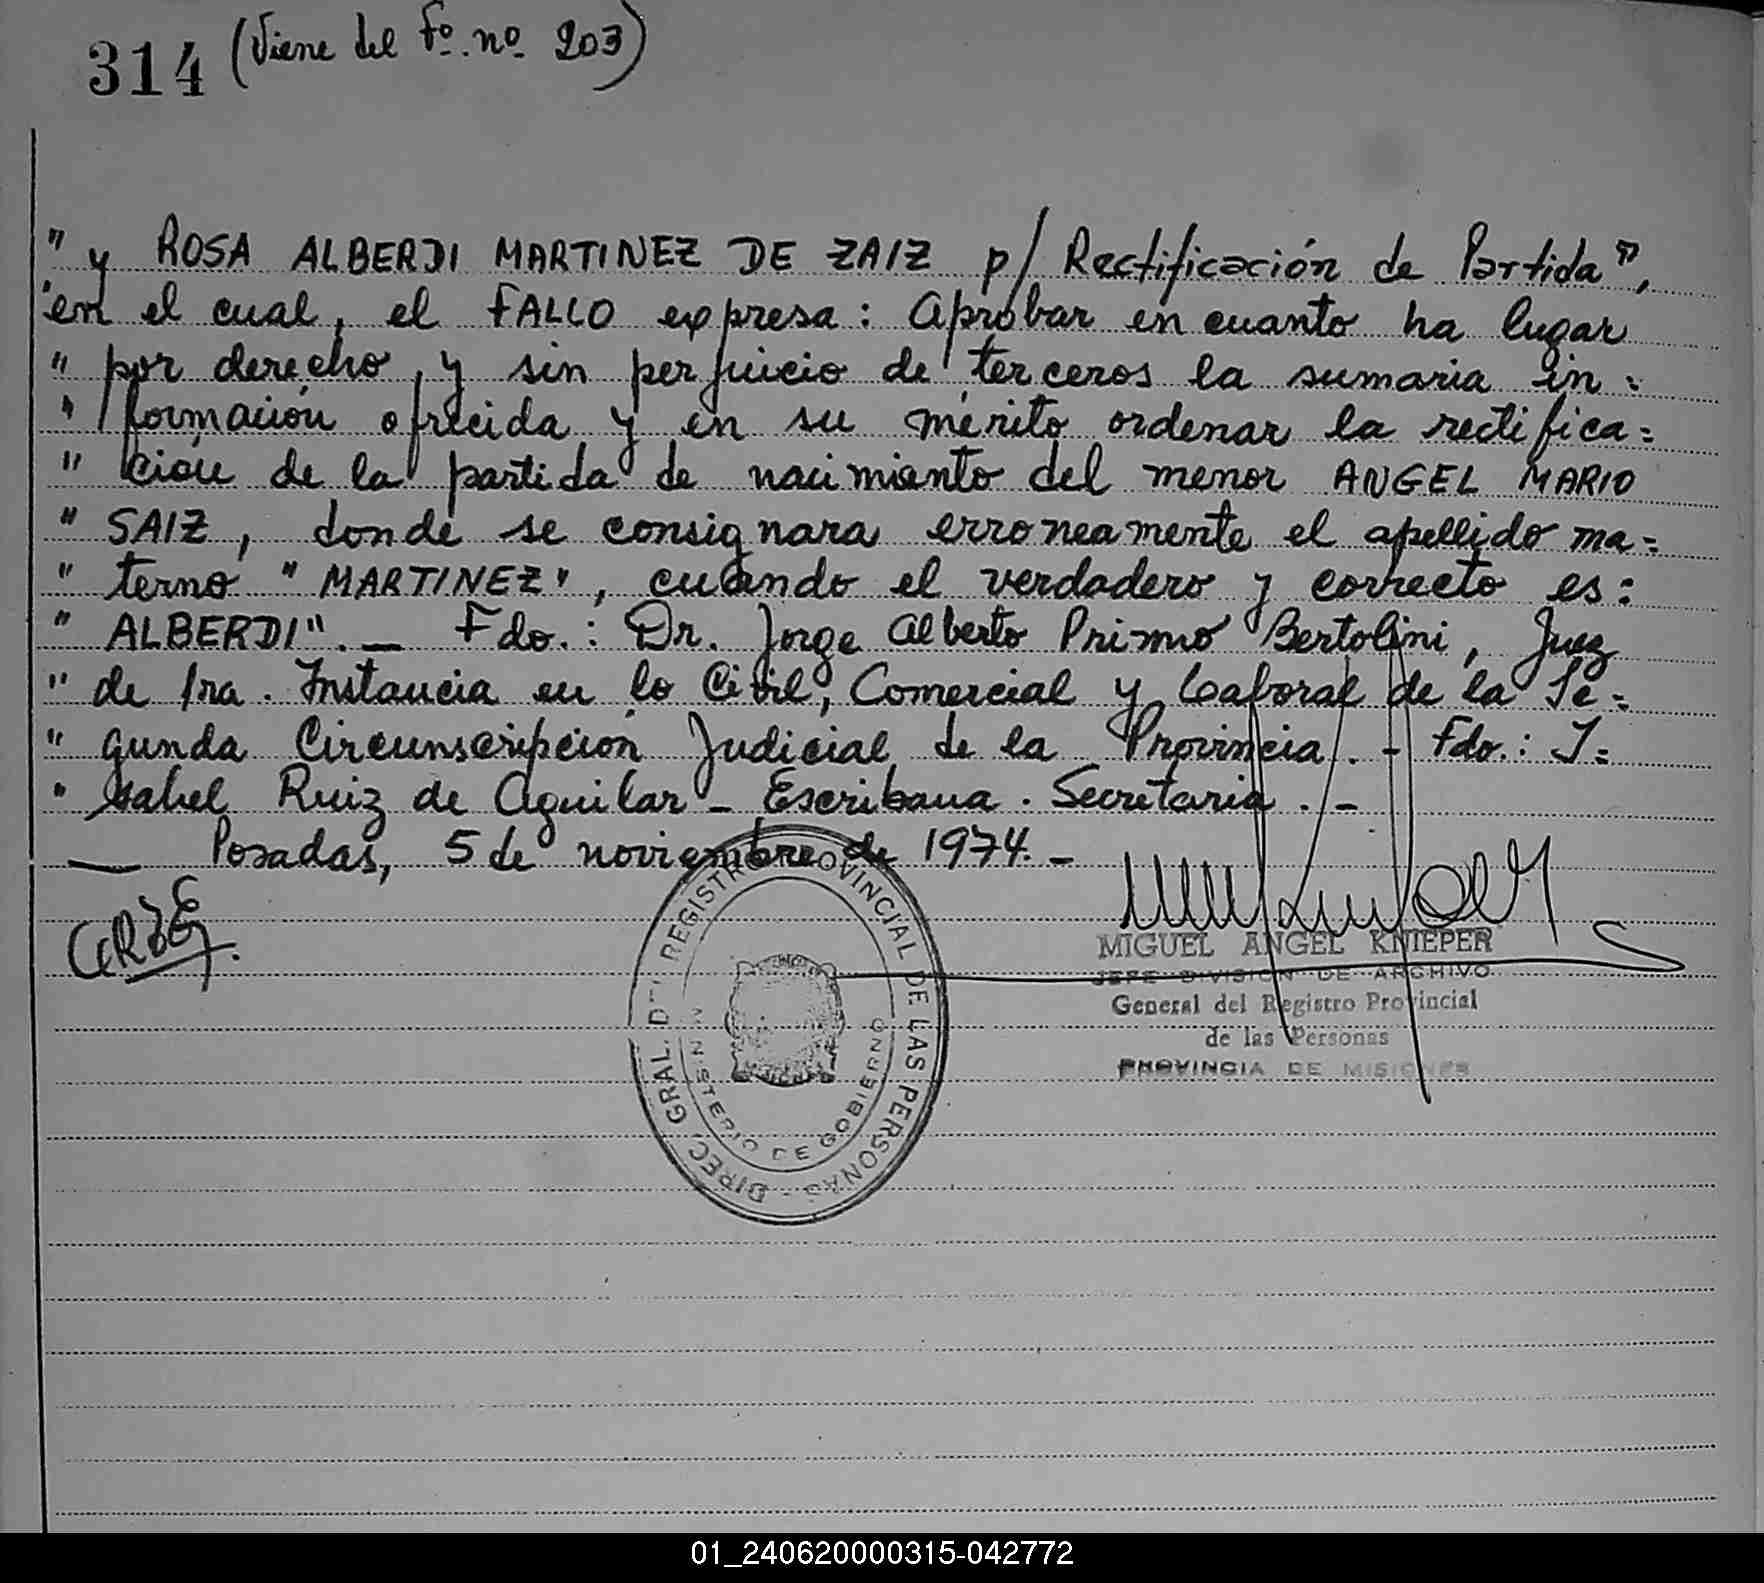 314 (Viene del Fo. no. 203)
" y ROSA ALBERDI MARTINEZ DE ZAIZ p/ Rectificación de Partida",
"en el cual, el FALLO expresa: Aprobar en cuanto ha lugar
" por derecho, y sin perjuicio de terceros la sumaria in=
" formación ofrecida y en su mérito ordenar la rectifica=
" ción de la partida de nacimiento del menor ANGEL MARIO
" SAIZ, donde se consignara erroneamente el apellido ma=
" terno "MARTINEZ", cuando el verdadero y correcto es:
" ALBERDI". — Fdo.: Dr. Jorge Alberto Primo Bertolini, Juez
" de 1ra. Instancia en lo Civil, Comercial y Laboral de la Se=
" gunda Circunscripción Judicial de la Provincia. - Fdo.: I=
" Isabel Ruiz de Aguilar - Escribana. Secretaria. -
— Posadas, 5 de noviembre de 1974. -
DIREC. GRAL. DEL REGISTRO PROVINCIAL DE LAS PERSONAS -
MINISTERIO DE GOBIERNO
MIGUEL ANGEL KNIEPER
JEFE DIVISION DE ARCHIVO
General del Registro Provincial
de las Personas
PROVINCIA DE MISIONES
01_240620000315-042772